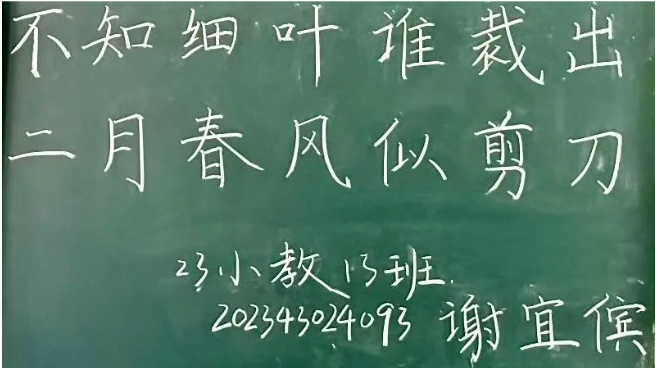 不知细叶谁裁出
二月春风似剪刀
23小教13班.
202343024093 谢宜傧